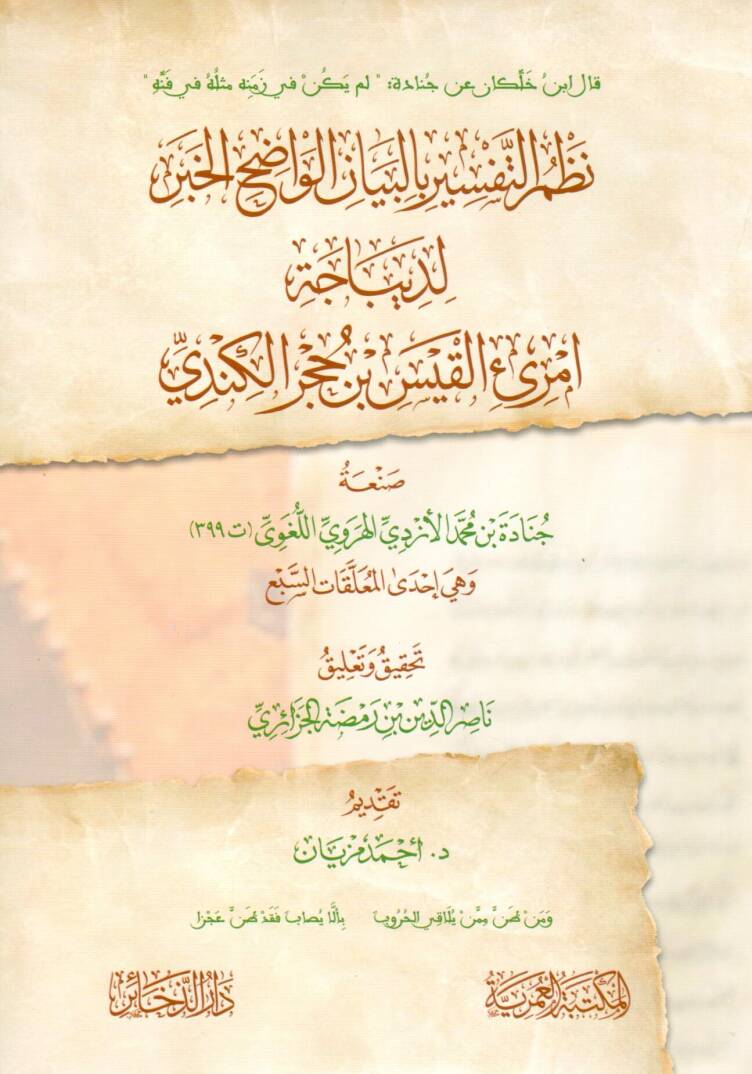 قال ابنُ خَلِّكان عن جُنادة: "لم يَكُنْ في زَمَنِه مثلُهُ في فَنِّهِ"
نَظْمُ التَّفْسِيرِ بِالبَيَانِ الوَاضِحِ الخَبَرِ
لِدِيبَاجَةِ
امْرِئِ القَيْسِ بْنِ حُجْرٍ الكِنْدِيِّ
صَنْعَةُ
جُنَادَةَ بْنِ مُحَمَّد الأَزْدِيِّ الهَرَوِيِّ اللُّغَوِيِّ (ت ٣٩٩)
وَهِيَ إِحْدَىٰ المُعَلَّقَاتِ السَّبْعِ
تَحْقِيقُ وَتَعْلِيقُ
نَاصِرِ الدِّينِ بْنِ رَمْضَةَ الجَزَائِرِيِّ
تَقْدِيمُ
د. أَحْمَد مَزْيَان
وَمَنْ ظَنَّ مِمَّنْ يُلَاقِي الحُرُوبَ بِأَلَّا يُصابَ فَقَدْ ظَنَّ عَجْزا
المَكْتَبَةُ العُمَرِيَّةُ
دَارُ الذَّخَائِرِ